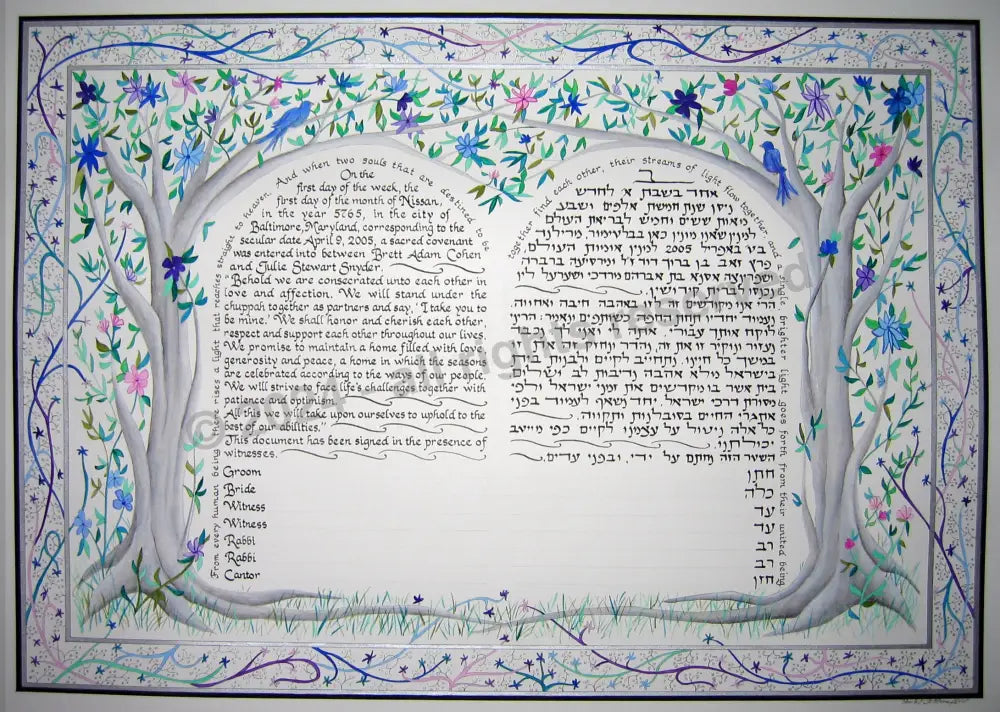 From every human being there rises a light that reaches straight to heaven. And when two souls that are destined to be
together find each other, their streams of light flow together and a single brighter light goes forth from their united being
On the
first day of the week, the
first day of the month of Nissan,
in the year 5765, in the city of
Baltimore, Maryland, corresponding to the
secular date April 9, 2005, a sacred covenant
was entered into between Brett Adam Cohen
and Julie Stewart Snyder.
"Behold we are consecrated unto each other in
love and affection. We will stand under the
chuppah together as partners and say, 'I take you to
be mine.' We shall honor and cherish each other,
respect and support each other throughout our lives.
We promise to maintain a home filled with love,
generosity and peace, a home in which the seasons
are celebrated according to the way of our people.
We will strive to face life's challenges together with
patience and optimism.
All this we will take upon ourselves to uphold to the
best of our abilities."
This document has been signed in the presence of
witnesses.
Groom
Bride
Witness
Witness
Rabbi
Rabbi
Cantor
ב
אחד בשבת א' לחדש
ניסן שנת חמשת אלפים ושבע
מאות ששים וחמש לבריאת העולם
למנין שאנו מונין כאן בבלטימור, מרילנד
ט' באפריל 2005 למנין אומות העולם
בן ברוך
בת אברהם מרדכי
ונכנסו לברית קידושין.
הרי אנו מקודשים זה לזו באהבה חיבה ואחווה.
ונעמוד יחדיו תחת החופה כשותפים ונאמר: הרני
במשך כל חיינו. ונתחייב לקיים ולבנות בית
בישראל מלא אהבה ונדיבות לב ושלום
בית אשר בו מקדשים את זמני ישראל ולפי
מסורת דרכי ישראל. יחד נשאף לעמוד בפני
אתגרי החיים בסובלנות ותקווה.
כל אלה ניטול על עצמנו לקיים כפי מיטב
יכולתנו.
השטר הזה נחתם על ידי, ובפני עדים.
חתן
כלה
עד
עד
רב
רב
חזן
© all rights reserved